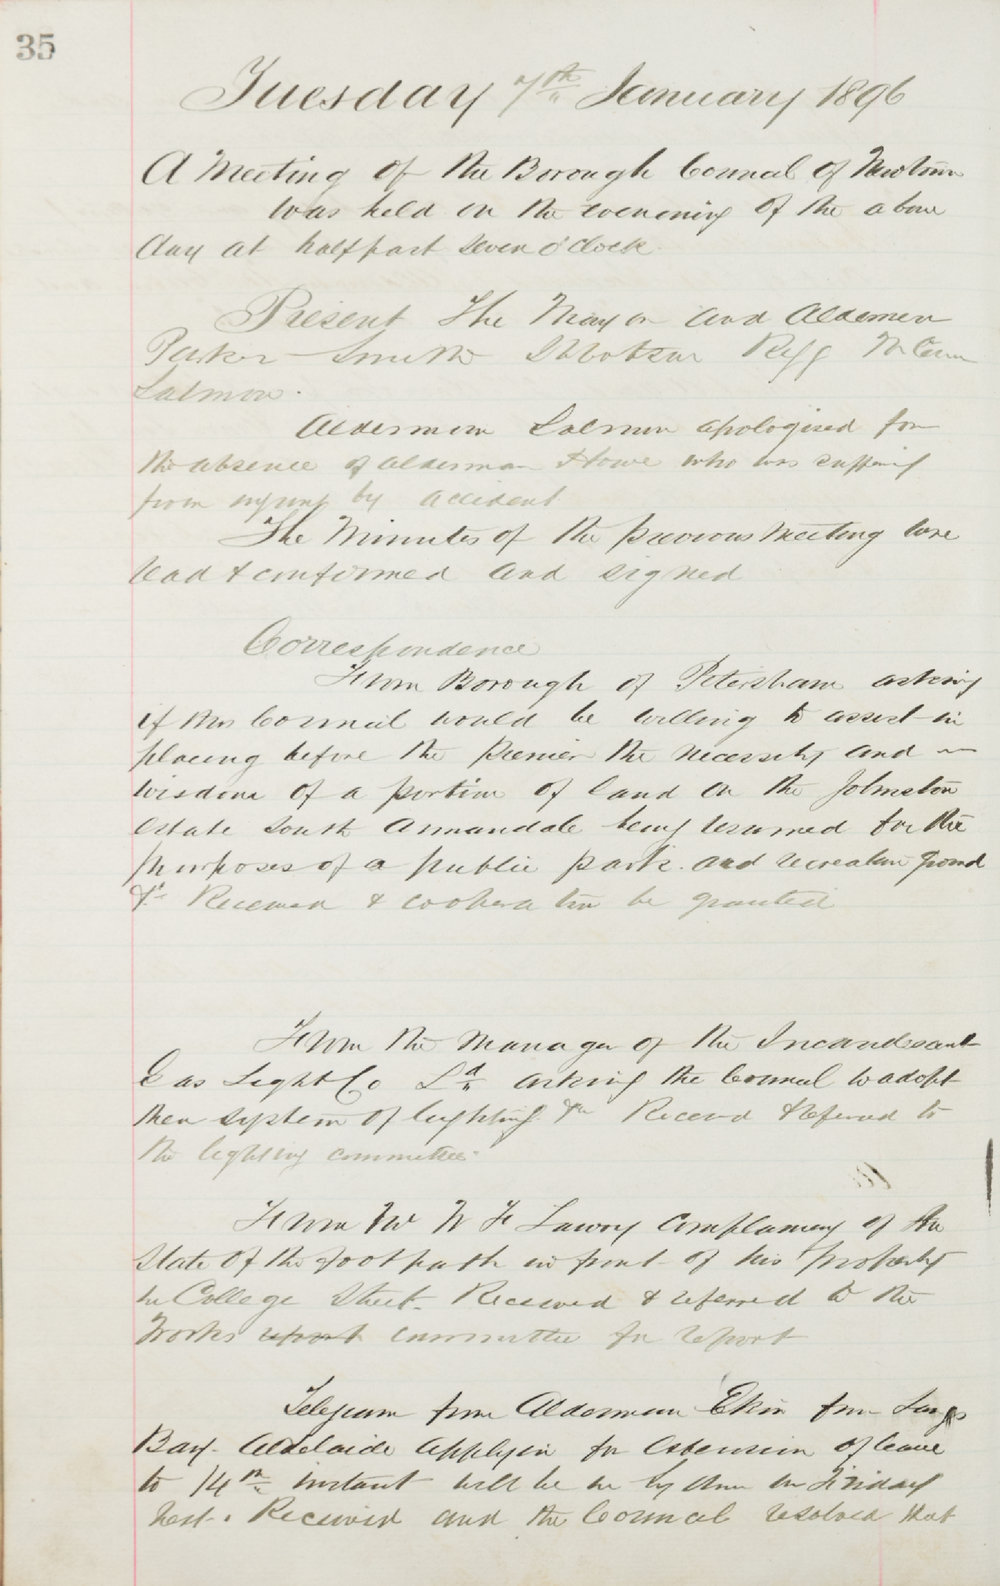 35
Tuesday 7th January 1896
A Meeting of the Borough Council of Newtown
was held on the evening of the above
day at half past seven o'clock.
Present The Mayor and Aldermen
Parker Smith Ibbotson Rigg
Salmon.
Alderman Salmon apologised for
the absence of Alderman Howe who was suffering
from injury by accident
The Minutes of the previous Meeting were
read & confirmed and signed
Correspondence
From Borough of Petersham asking
if this Council would be willing to assist in
placing before the Premier the necessity and
wisdom of a portion of land on the Johnston
Estate South Annandale being resumed for the
purposes of a public park. and recreation ground
&c Received & cooperation be granted
From the Manager of the Incandescant
Gas Light Co Ld asking the Council to adopt
their system of lighting &c Received & Referred to
the lighting committee.
From Mr W H Lawry complaining of the
state of the footpath in front of his property
in College Street. Received & referred to the
Works report committee for report
Telegram from Alderman Ekin from Largs
Bay. Adelaide applying for Extension of leave
to 14th instant will be in Sydney on Friday
next. Received and the Council resolved that